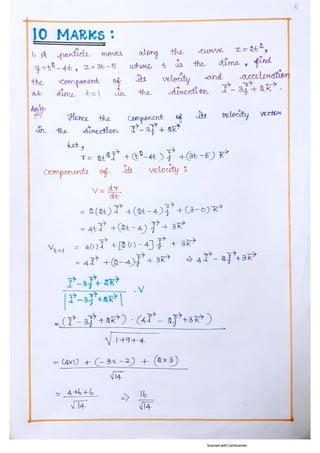 5
10 MARKS :
1) A particle moves along the curve x = 2t²,
y = t² - 4t, z = 3t - 5 where t is the time, find
the component of its velocity and acceleration
at time t = 1 in the direction i⃗ - 3j⃗ + 2k⃗.
Soln
Hence the component of its velocity vector
in the direction i⃗ - 3j⃗ + 2k⃗.
Let,
r = 2t² i⃗ + (t² - 4t) j⃗ + (3t - 5) k⃗
Components of its velocity :
V = dr/dt
= 2(2t) i⃗ + (2t - 4) j⃗ + (3 - 0) k⃗
= 4t i⃗ + (2t - 4) j⃗ + 3k⃗
V t=1 = 4(1) i⃗ + [2(1) - 4] j⃗ + 3k⃗
= 4i⃗ + (2 - 4) j⃗ + 3k⃗ ⇒ 4i⃗ - 2j⃗ + 3k⃗
i⃗ - 3j⃗ + 2k⃗ / |i⃗ - 3j⃗ + 2k⃗| . V
= (i⃗ - 3j⃗ + 2k⃗) · (4i⃗ - 2j⃗ + 3k⃗) / √1+9+4
= (4×1) + (-3× -2) + (2×3) / √14
= 4+6+6 / √14 ⇒ 16 / √14
Scanned with CamScanner